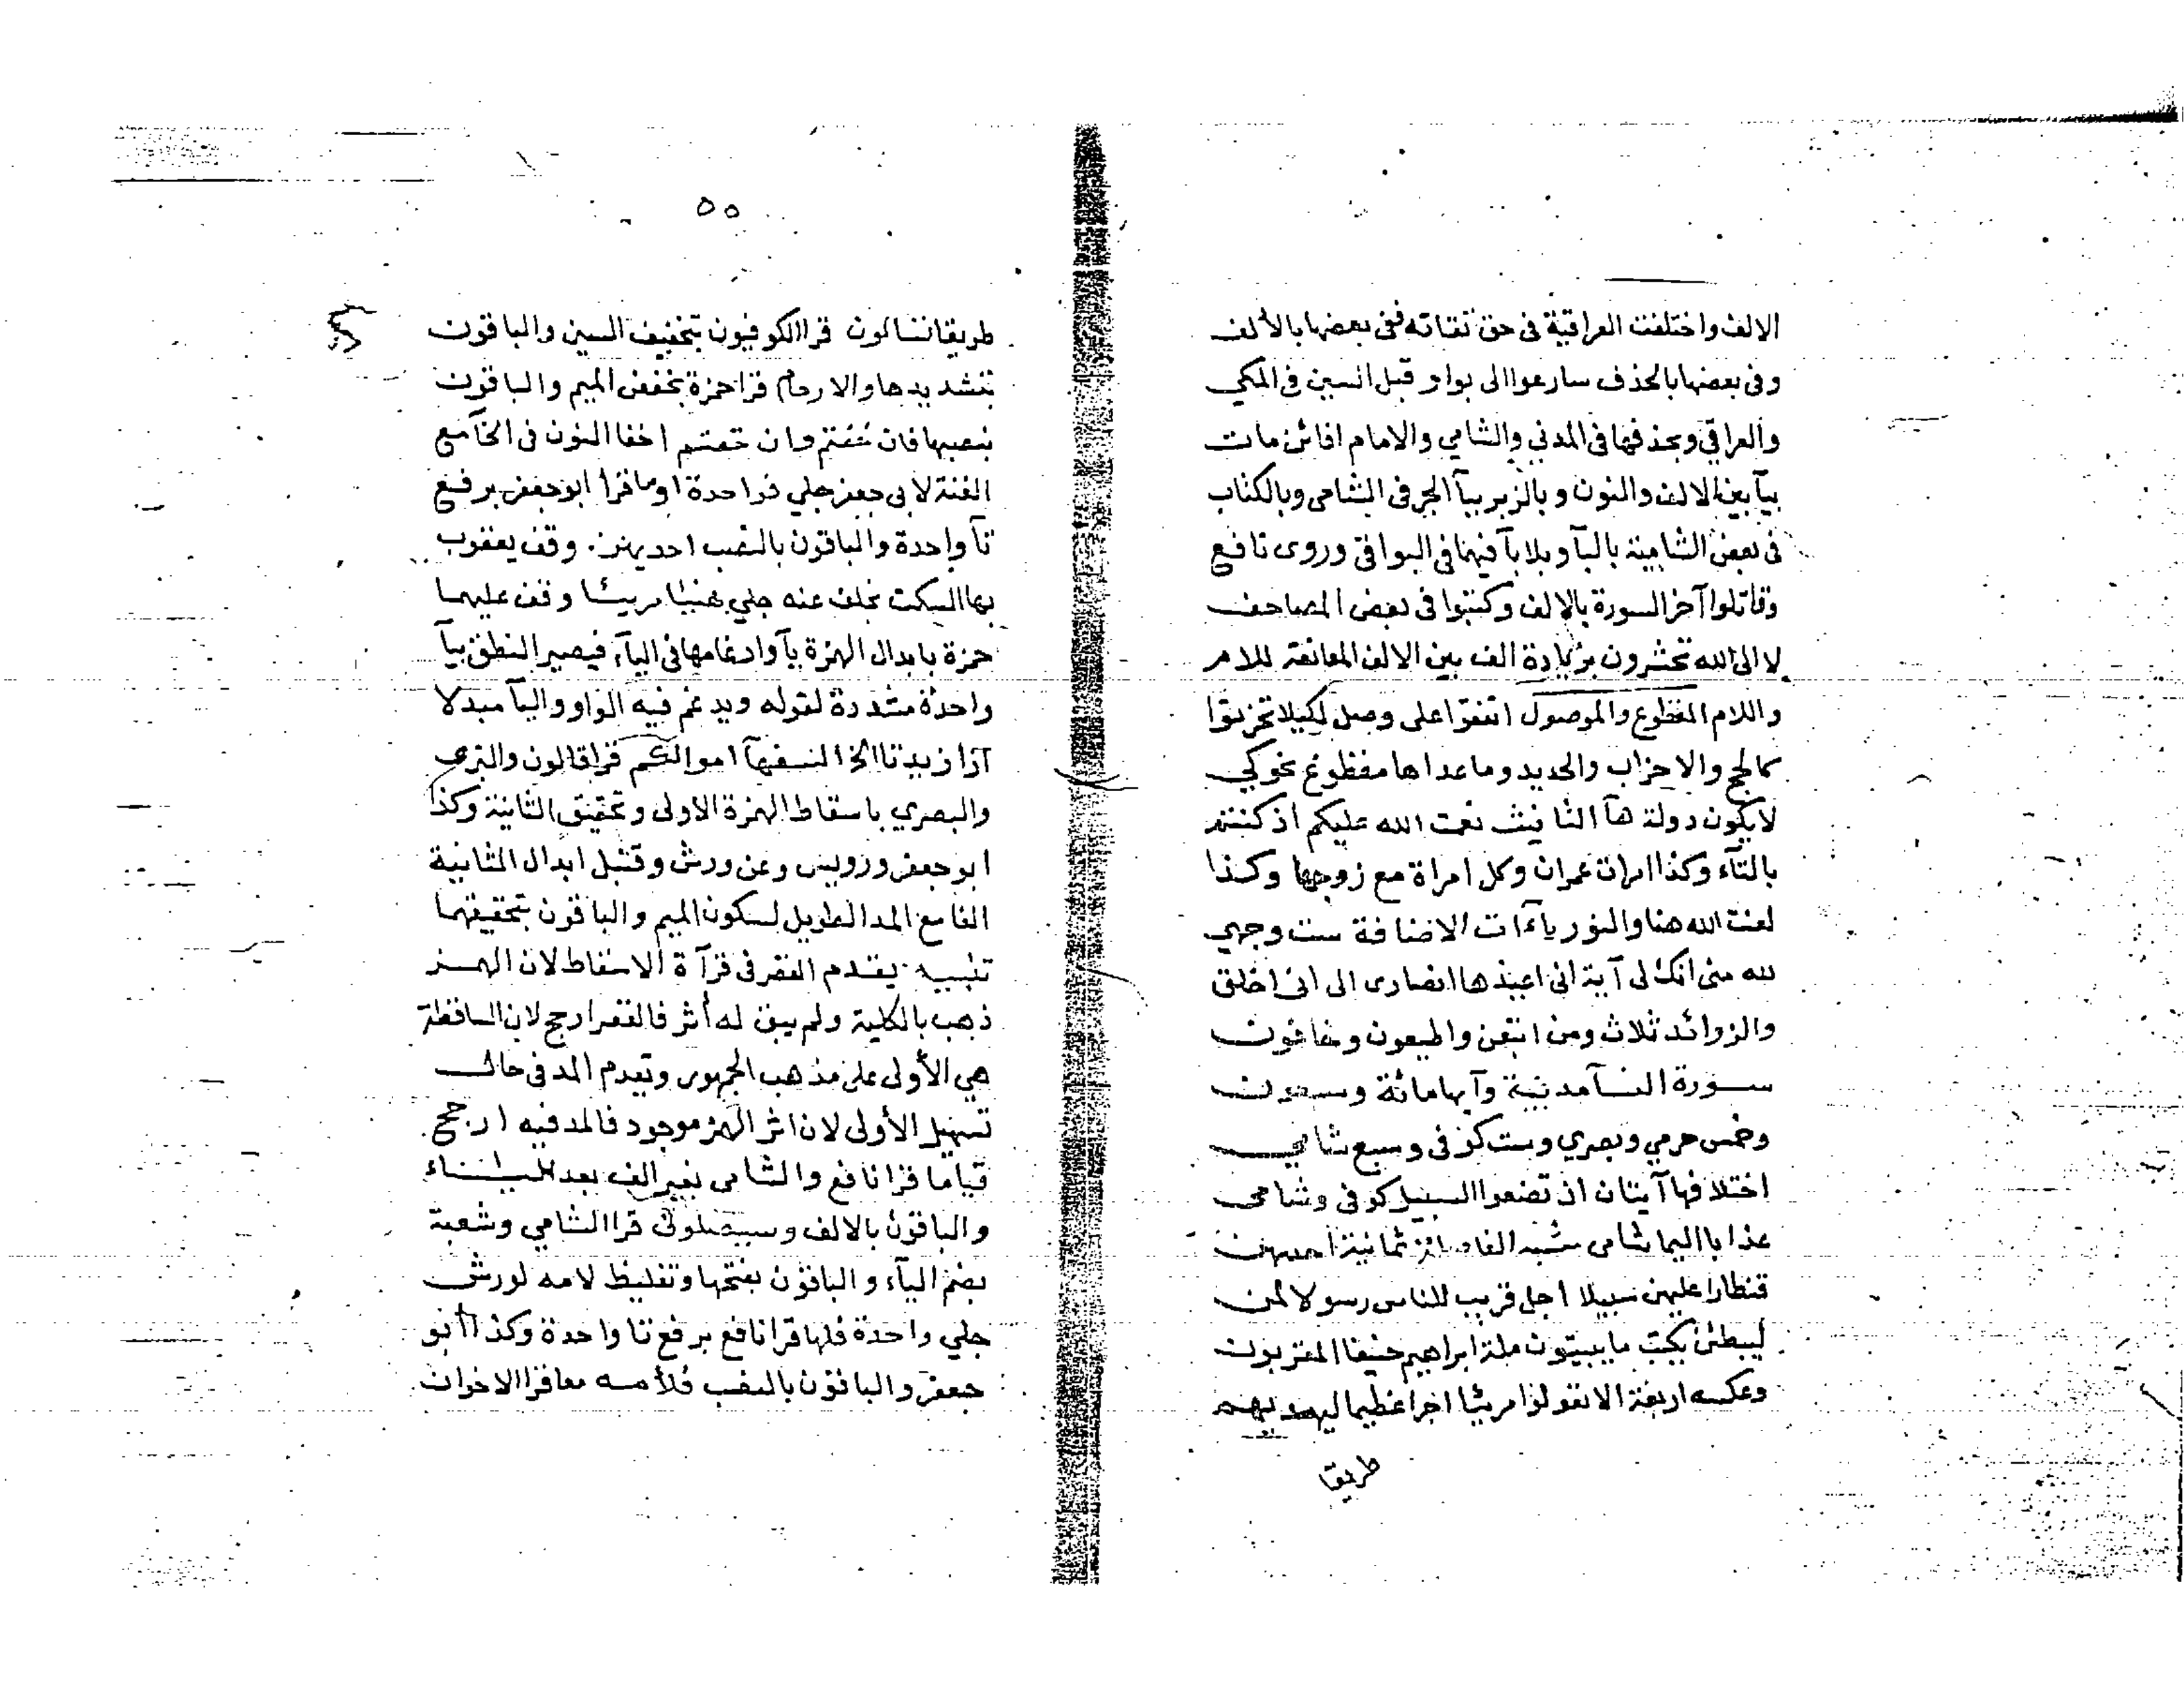 الالف واختلفت العراقية فى حق تقاته ففى بعضها بالألف
وفى بعضها بالحذف سارعوا الى بواو قبل السين فى المكي
والعراقي وبحذفها فى المدني والشامي والامام افائن مات
بيآ بين الالف والنون وبالزبر ببآ الجر فى الشامى وبالكتاب
فى بعض الشامية بالبآ وبلا بآ فيهما فى البواقى وروى نافع
وقاتلوا آخر السورة بالالف وكتبوا فى بعض المصاحف
لا الى الله تحشرون بزيادة الف بين الالف المعانقة للام
واللام المقطوع والموصول اتفقوا على وصل لكيلا تحزنوا
كالحج والاحزاب والحديد وما عداها مقطوع نحو كي
لا يكون دولة هآ التانيث نعمت الله عليكم اذ كنتم
بالتآء وكذا امرات عمران وكل امراة مع زوجها وكذا
لعنت الله هنا والنور ياءات الاضافة ست وجهي
لله منى انك لى آية انى اعيذها انصارى الى انى اخلق
والزوائد ثلاث ومن اتبعن واطيعون وخافون
سورة النسآ مدنية وآيها مائة وسبعون
وخمس حرمي وبصري وست كوفى وسبع شامي
اختلافها آيتان ان تضلوا السبيل كوفى وشامى
عذابا اليما شامى مشبه الفاصلة ثمانية احديهن
قنطارا عليهن سبيلا اجل قريب للناس رسولا لمن
ليبطئن يكتب ما يبيتون ملة ابراهيم حنيفا المقربون
وعكسه اربعة الا تعولوا مريئا اجرا عظيما ليهديهم
طريقا
٥٥
طريقا تسالون قرا الكوفيون بتخفيف السين والباقون
بتشديدها والارحام قرا حمزة بخفض الميم والباقون
بنصبها فان خفتم وان خفتم اخفا النون فى الخآ مع
الغنة لابى جعفر جلي فواحدة او ما قرا ابو جعفر برفع
تآ واحدة والباقون بالنصب احديهن وقف يعقوب
بها السكت بخلف عنه جلي هنيئا مريئا وقف عليهما
حمزة بابدال الهمزة يآ وادغامها فى اليآء فيصير النطق بيآ
واحدة مشددة لقوله ويدغم فيه الواو واليآ مبدلا
آذا زيدتا الخ السفهآ اموالكم قرا قالون والبزى
والبصري باسقاط الهمزة الاولى وتحقيق الثانية وكذا
ابو جعفر ورويس وعن ورش وقنبل ابدال الثانية
الفا مع المد الطويل لسكون الميم والباقون بتحقيقهما
تنبيه يقدم القصر فى قرآة الاسقاط لان الهمز
ذهب بالكلية ولم يبق له أثر فالقصر ارجح لان الساقطة
هي الأولى على مذهب الجمهور وتقدم المد فى حالة
تسهيل الأولى لان اثر الهمز موجود فالمد فيه ارجح
قياما قرا نافع والشامى بغير الف بعد الياء
والباقون بالالف وسيصلون قرا الشامي وشعبة
بضم اليآء والباقون بفتحها وتغليظ لامه لورش
جلي واحدة فلها قرا نافع برفع تا واحدة وكذا أبو
جعفر والباقون بالنصب فلأمه معا قرا الاخوان